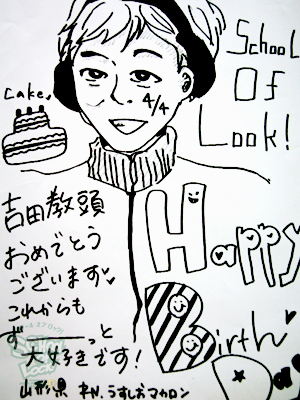 School
Of
Look!
Cake.
4/4
吉田教頭
おめでとう
ございます♥
これからも
ず――っと
大好きです!
山形県 R.N.うすしおマカロン
Happy
Birth
Day